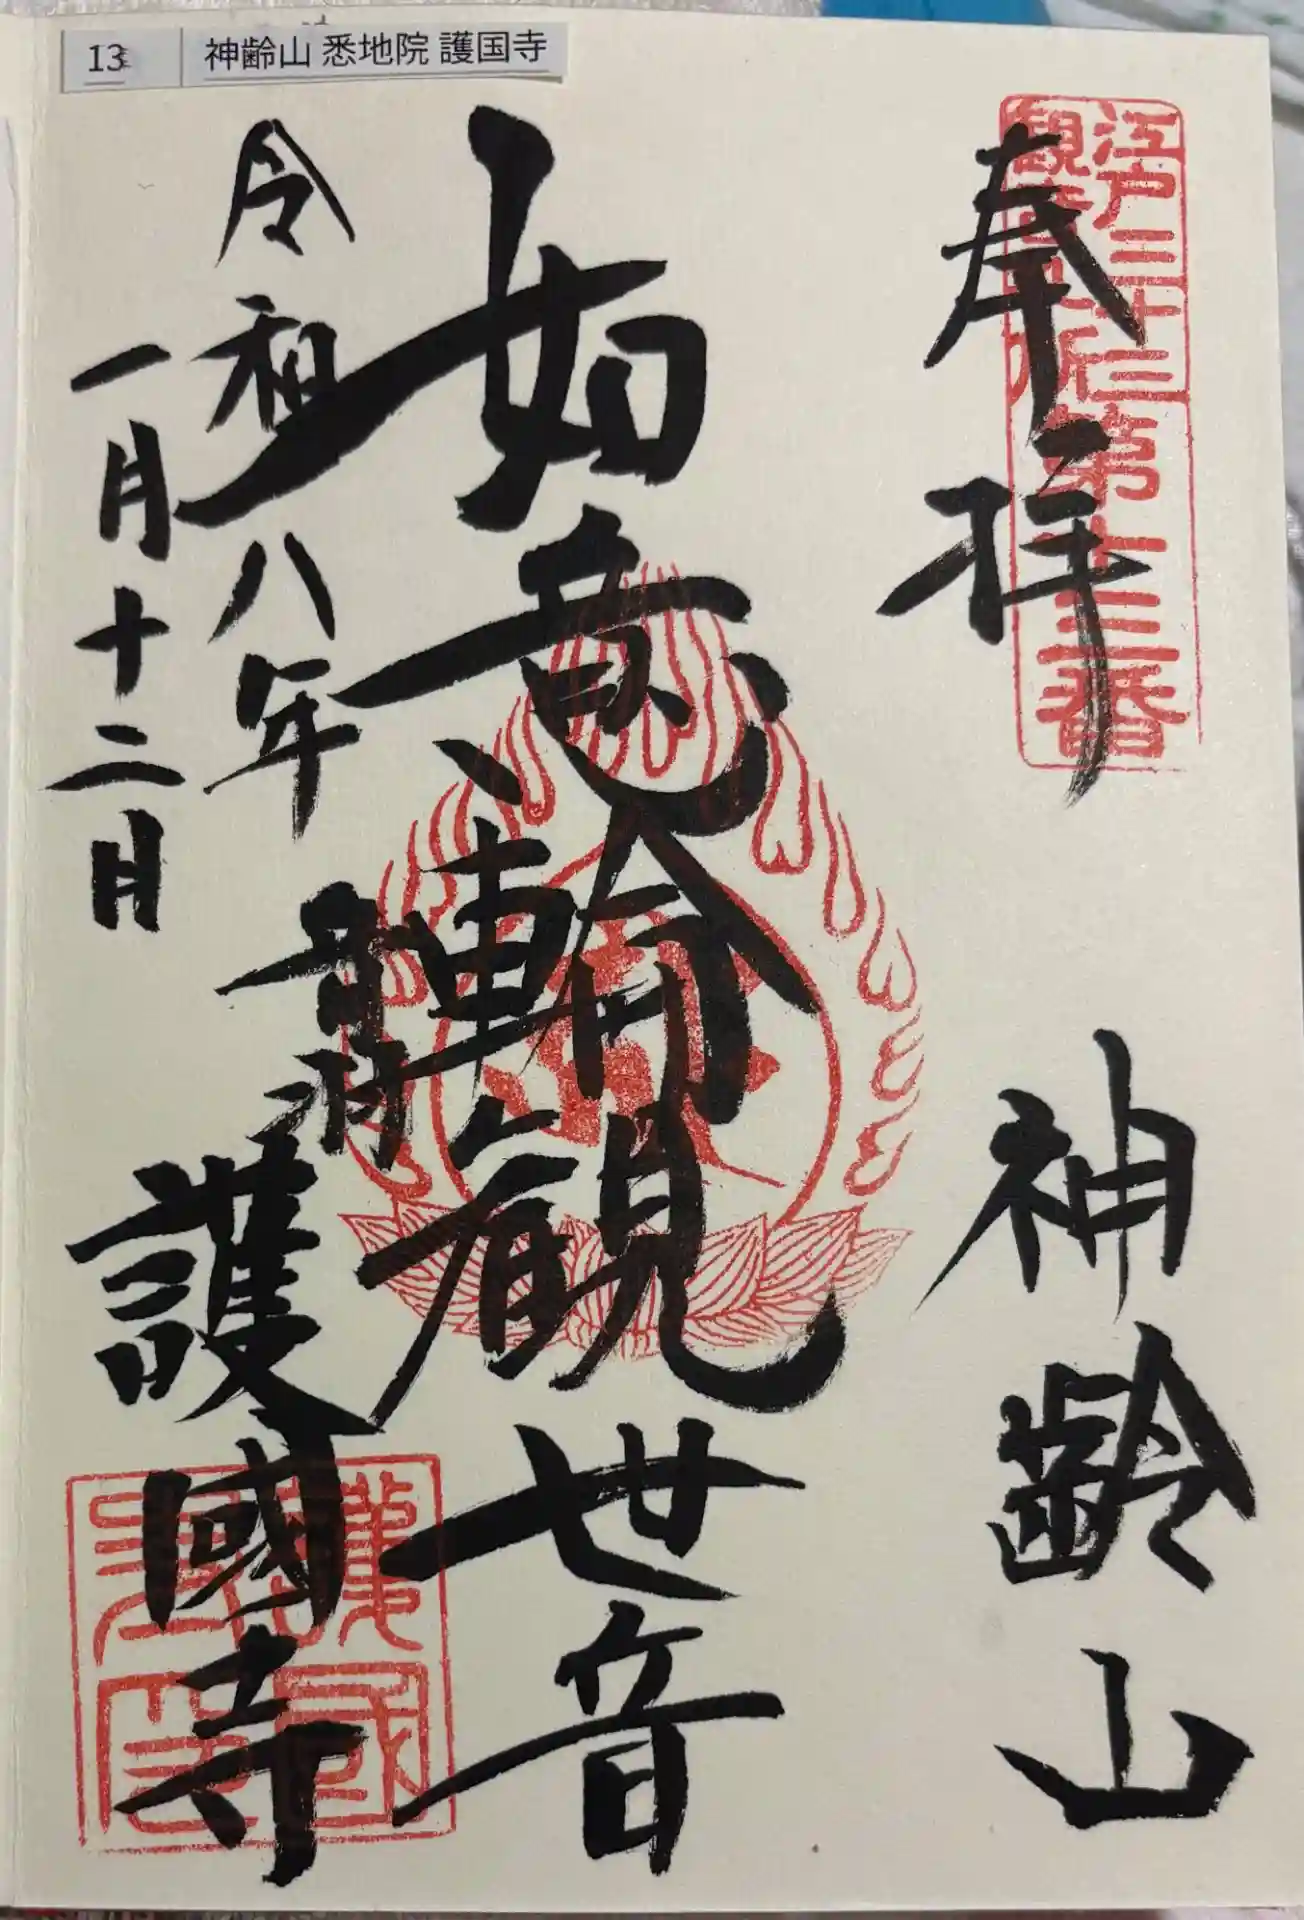 13 神齢山 悉地院 護国寺
江戸三十三
観音札所
第十三番
奉拝
神齢山
如意輪観世音
令和八年
一月十二日
音羽
護國寺